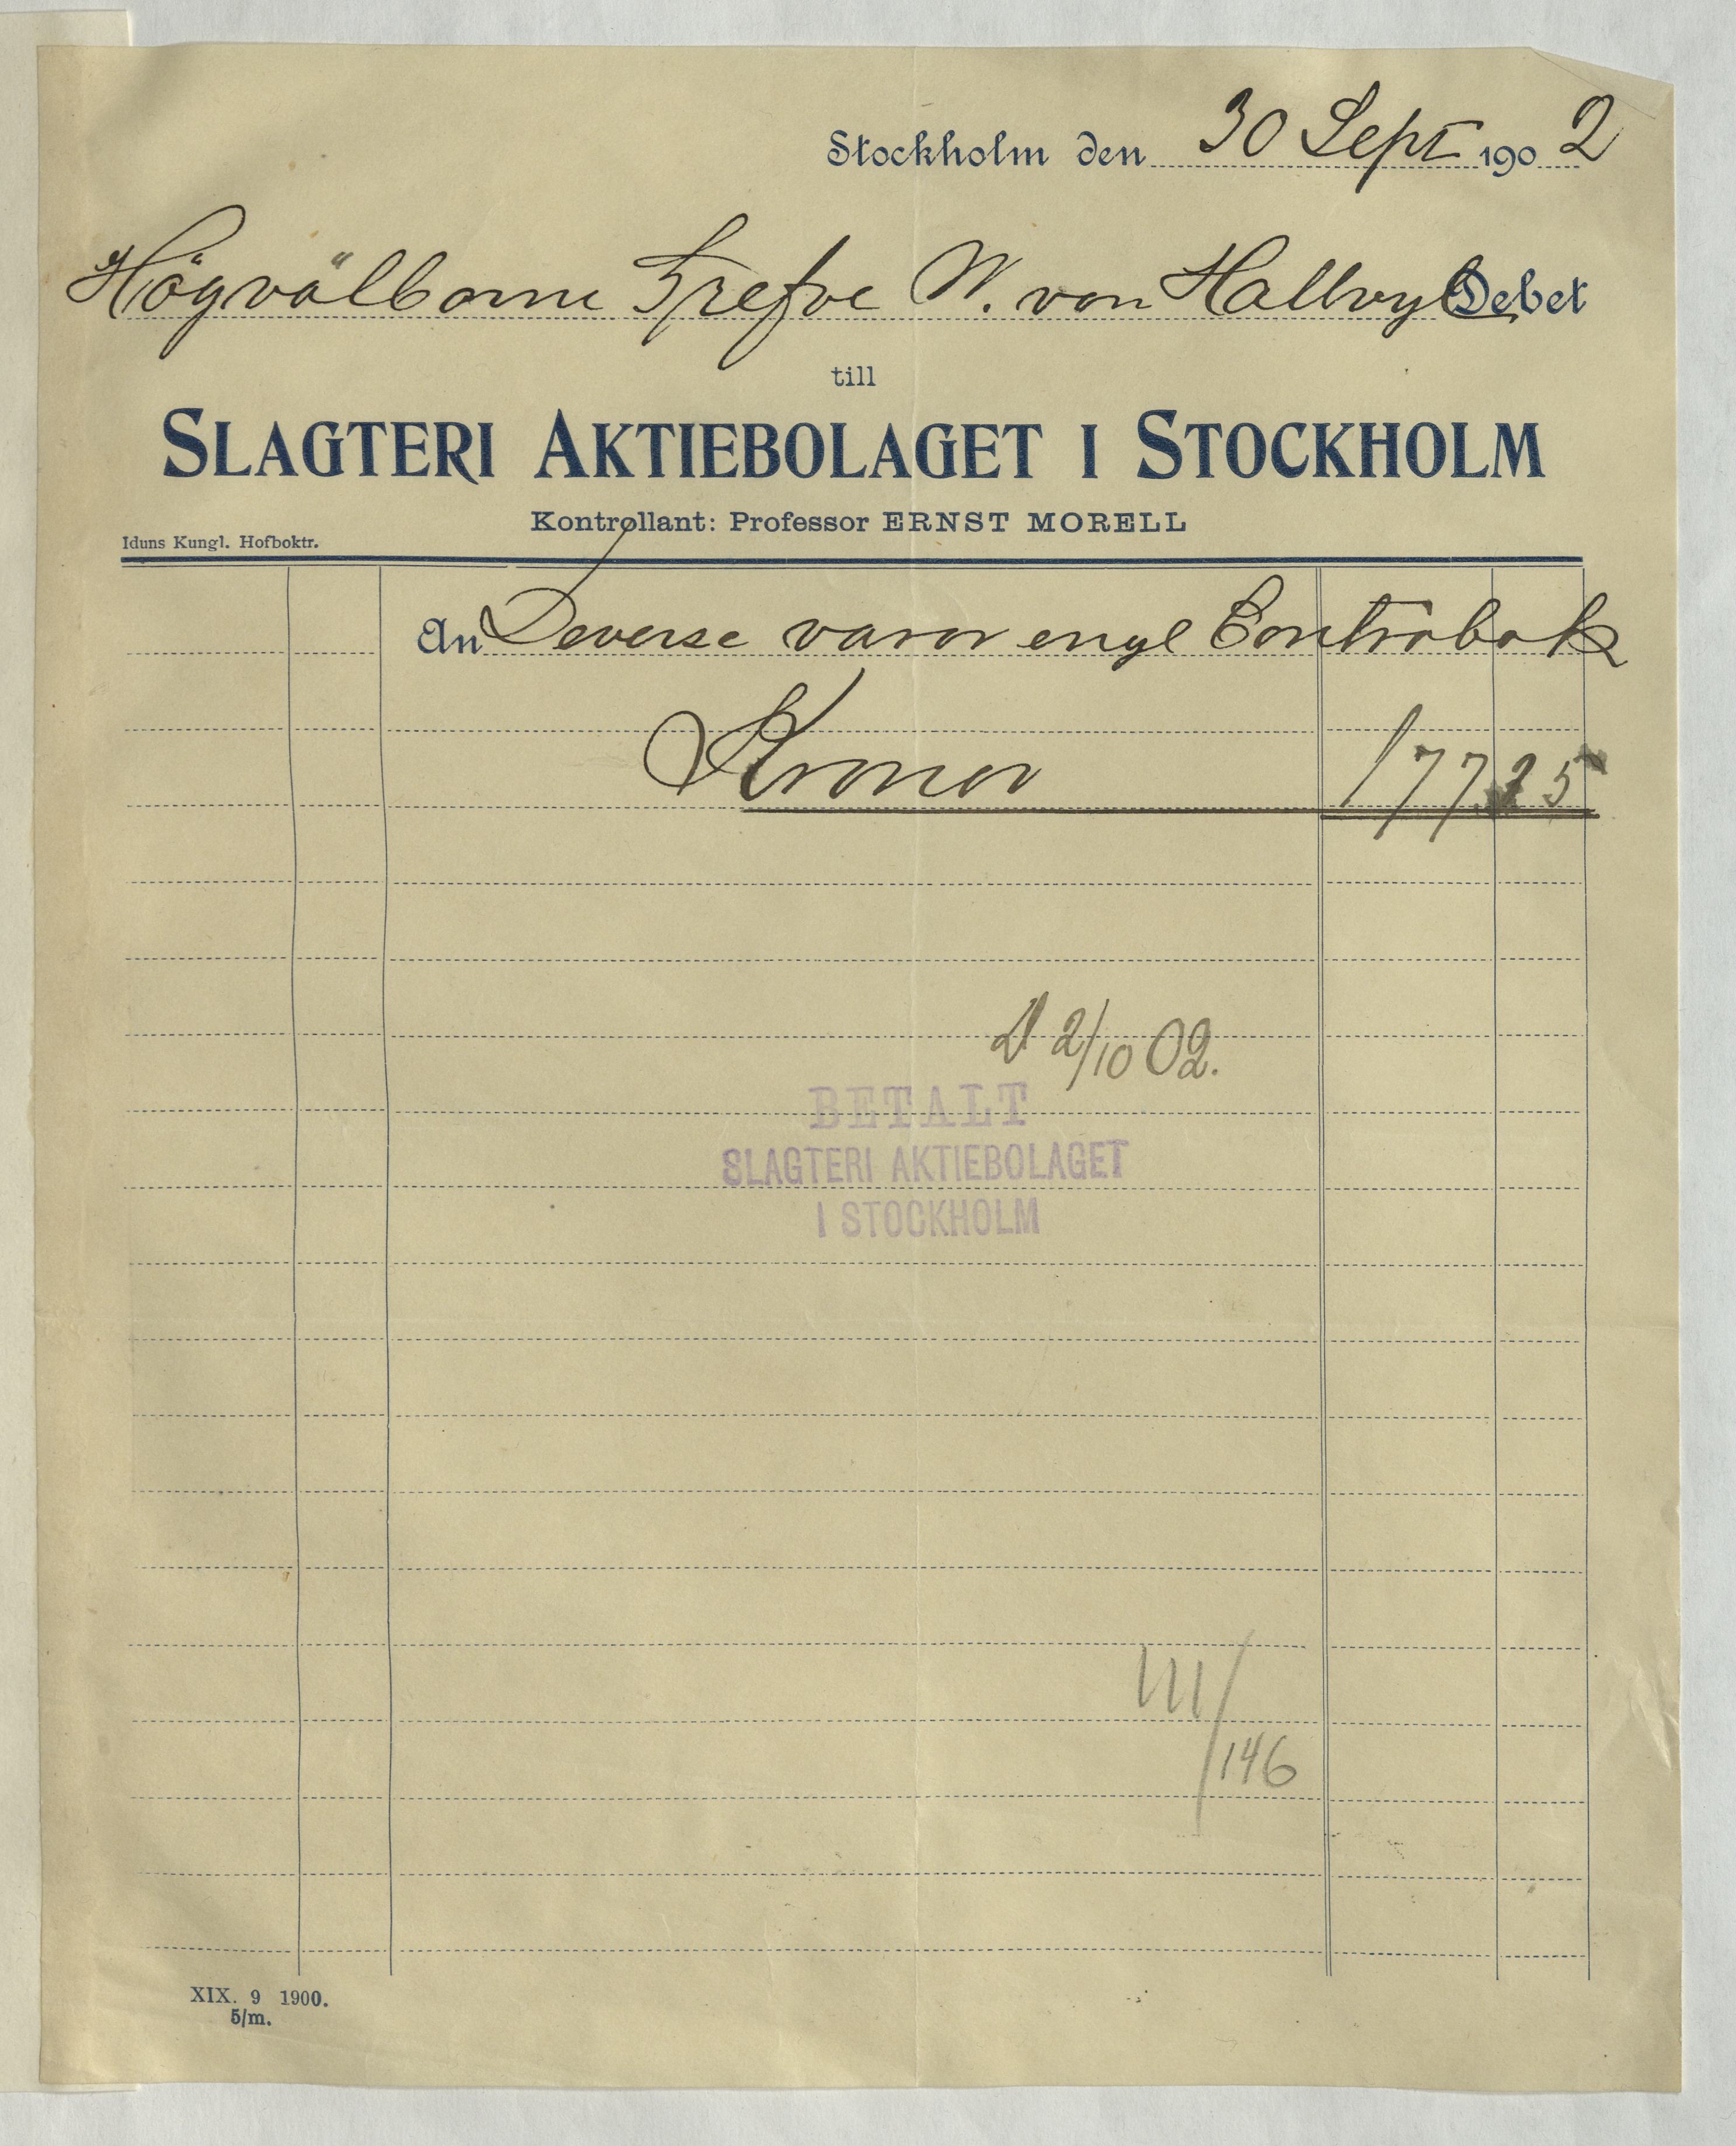 Stockholm den 30 Sept 1902
Högvälborne Grefve W. von Hallwyl Debet
till
SLAGTERI AKTIEBOLAGET I STOCKHOLM
Kontrollant: Professor ERNST MORELL
Iduns Kungl. Hofboktr.
An Deverse varor engl Contrabok
Kronor 177.25
2/10 02.
BETALT
SLAGTERI AKTIEBOLAGET
I STOCKHOLM
III/146
XIX. 9 1900.
5/m.